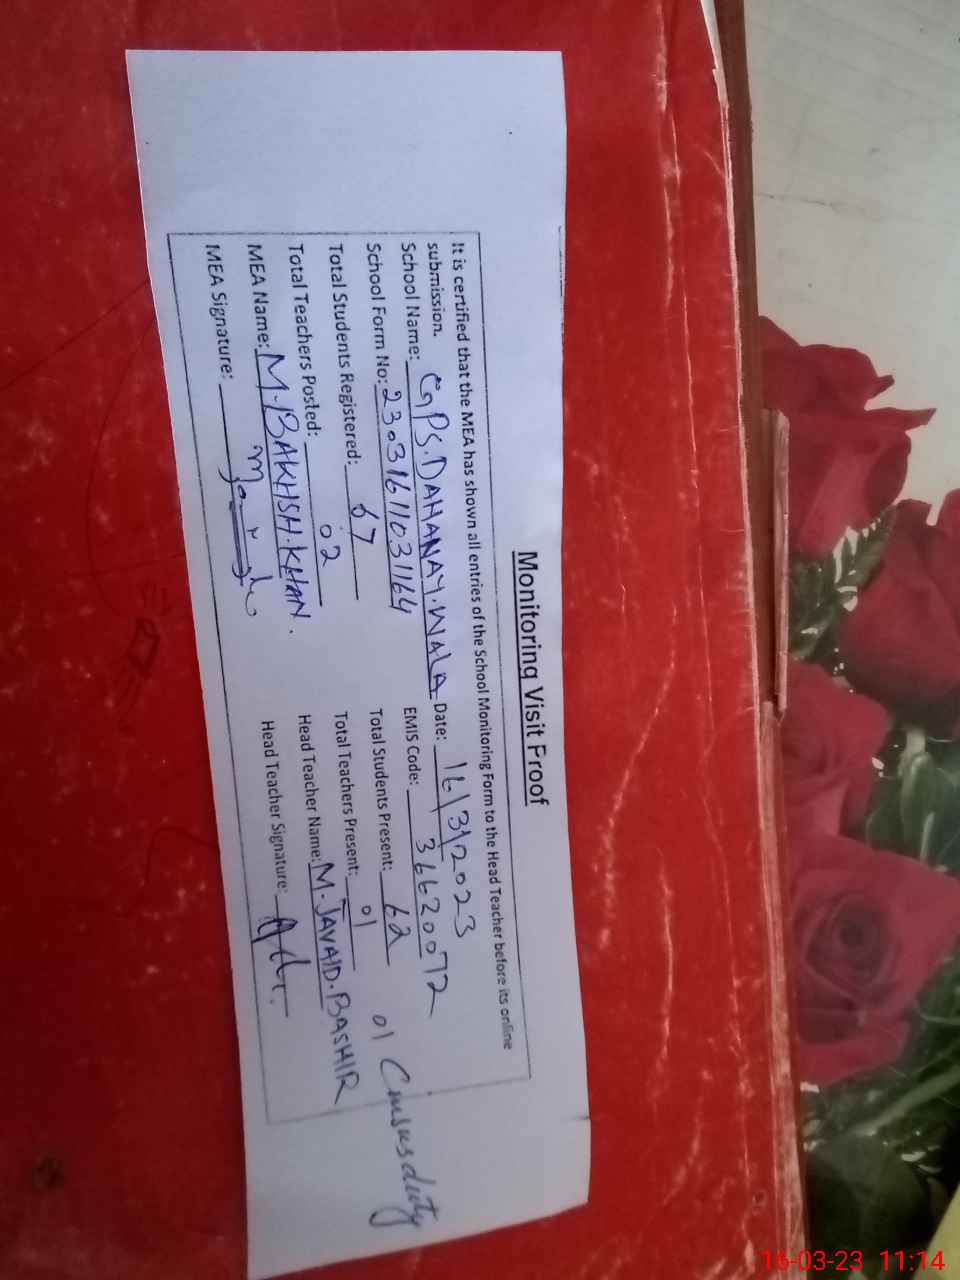 Monitoring Visit Froof
It is certified that the MEA has shown all entries of the School Monitoring Form to the Head Teacher before its online
submission.
School Name: GPS. DAHANAY. WALA Date: 16/3/2023
School Form No: 23031611031164 EMIS Code: 36620072
Total Students Registered: 67 Total Students Present: 62
Total Teachers Posted: 02 Total Teachers Present: 01 01 Census duty
MEA Name: M. BAKHSH. KHAN. Head Teacher Name: M. JAVAID. BASHIR
MEA Signature: Head Teacher Signature:
16-03-23 11:14